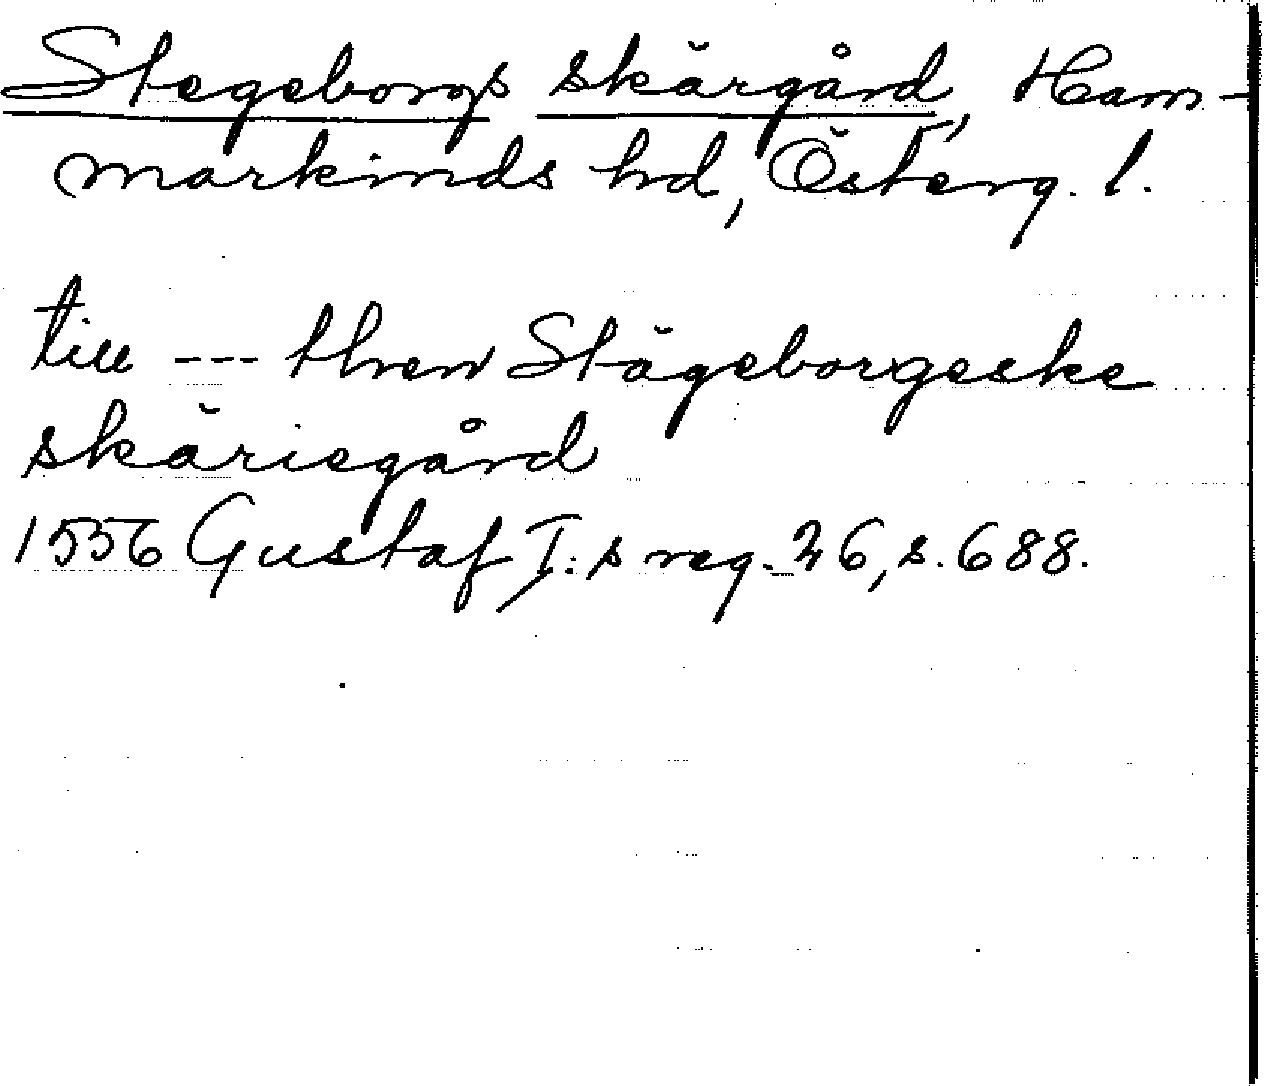 Stegeborgs skärgård, Ham-
markinds hd, Österg. l.
till --- then Stägeborgeske
skäriegård
1556 Gustaf I:s reg. 26, s. 688.